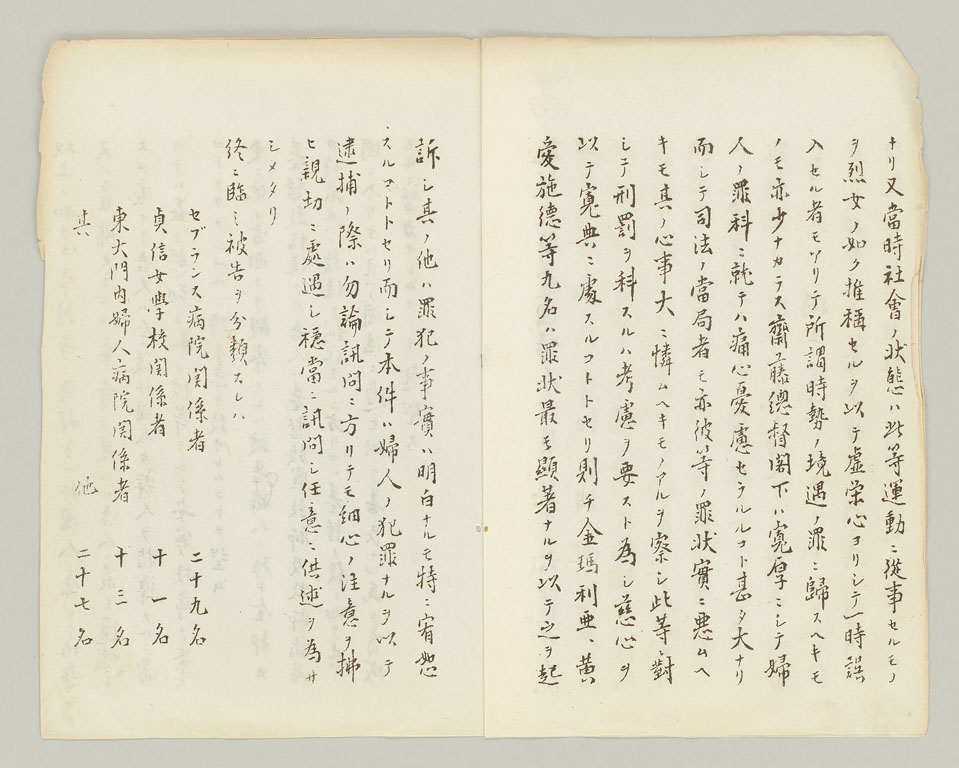 ナリ又當時社會ノ状態ハ此等運動ニ從事セルモノ
ヲ烈女ノ如ク推稱セルヲ以テ虚栄心ヨリシテ一時誤
入セル者モアリテ所謂時勢ノ境遇ノ罪ニ歸スヘキモ
ノモ亦少ナカラス齋藤總督閣下ハ寛厚ニシテ婦
人ノ罪科ニ就テハ痛心憂慮セラルルコト甚タ大ナリ
而シテ司法ノ當局者モ亦彼等ノ罪状實ニ悪ムヘ
キモ其ノ心事大ニ憐ムヘキモノアルヲ察シ此等ニ對
シテ刑罰ヲ科スルハ考慮ヲ要スト為シ慈心ヲ
以テ寛典ニ處スルコトトセリ則チ金瑪利亜、黄
愛施德等九名ハ罪状最モ顕著ナルヲ以テ之ヲ起
訴シ其ノ他ハ罪犯ノ事實ハ明白ナルモ特ニ宥恕
スルコトトセリ而シテ本件ハ婦人ノ犯罪ナルヲ以テ
逮捕ノ際ハ勿論訊問ニ方リテモ細心ノ注意ヲ拂
ヒ親切ニ處遇シ穏當ニ訊問シ任意ニ供述ヲ為サ
シメタリ
終ニ臨ミ被告ヲ分類スレハ
セブランス病院関係者 二十九名
貞信女學校関係者 十一名
東大門内婦人病院関係者 十三名
其他 二十七名